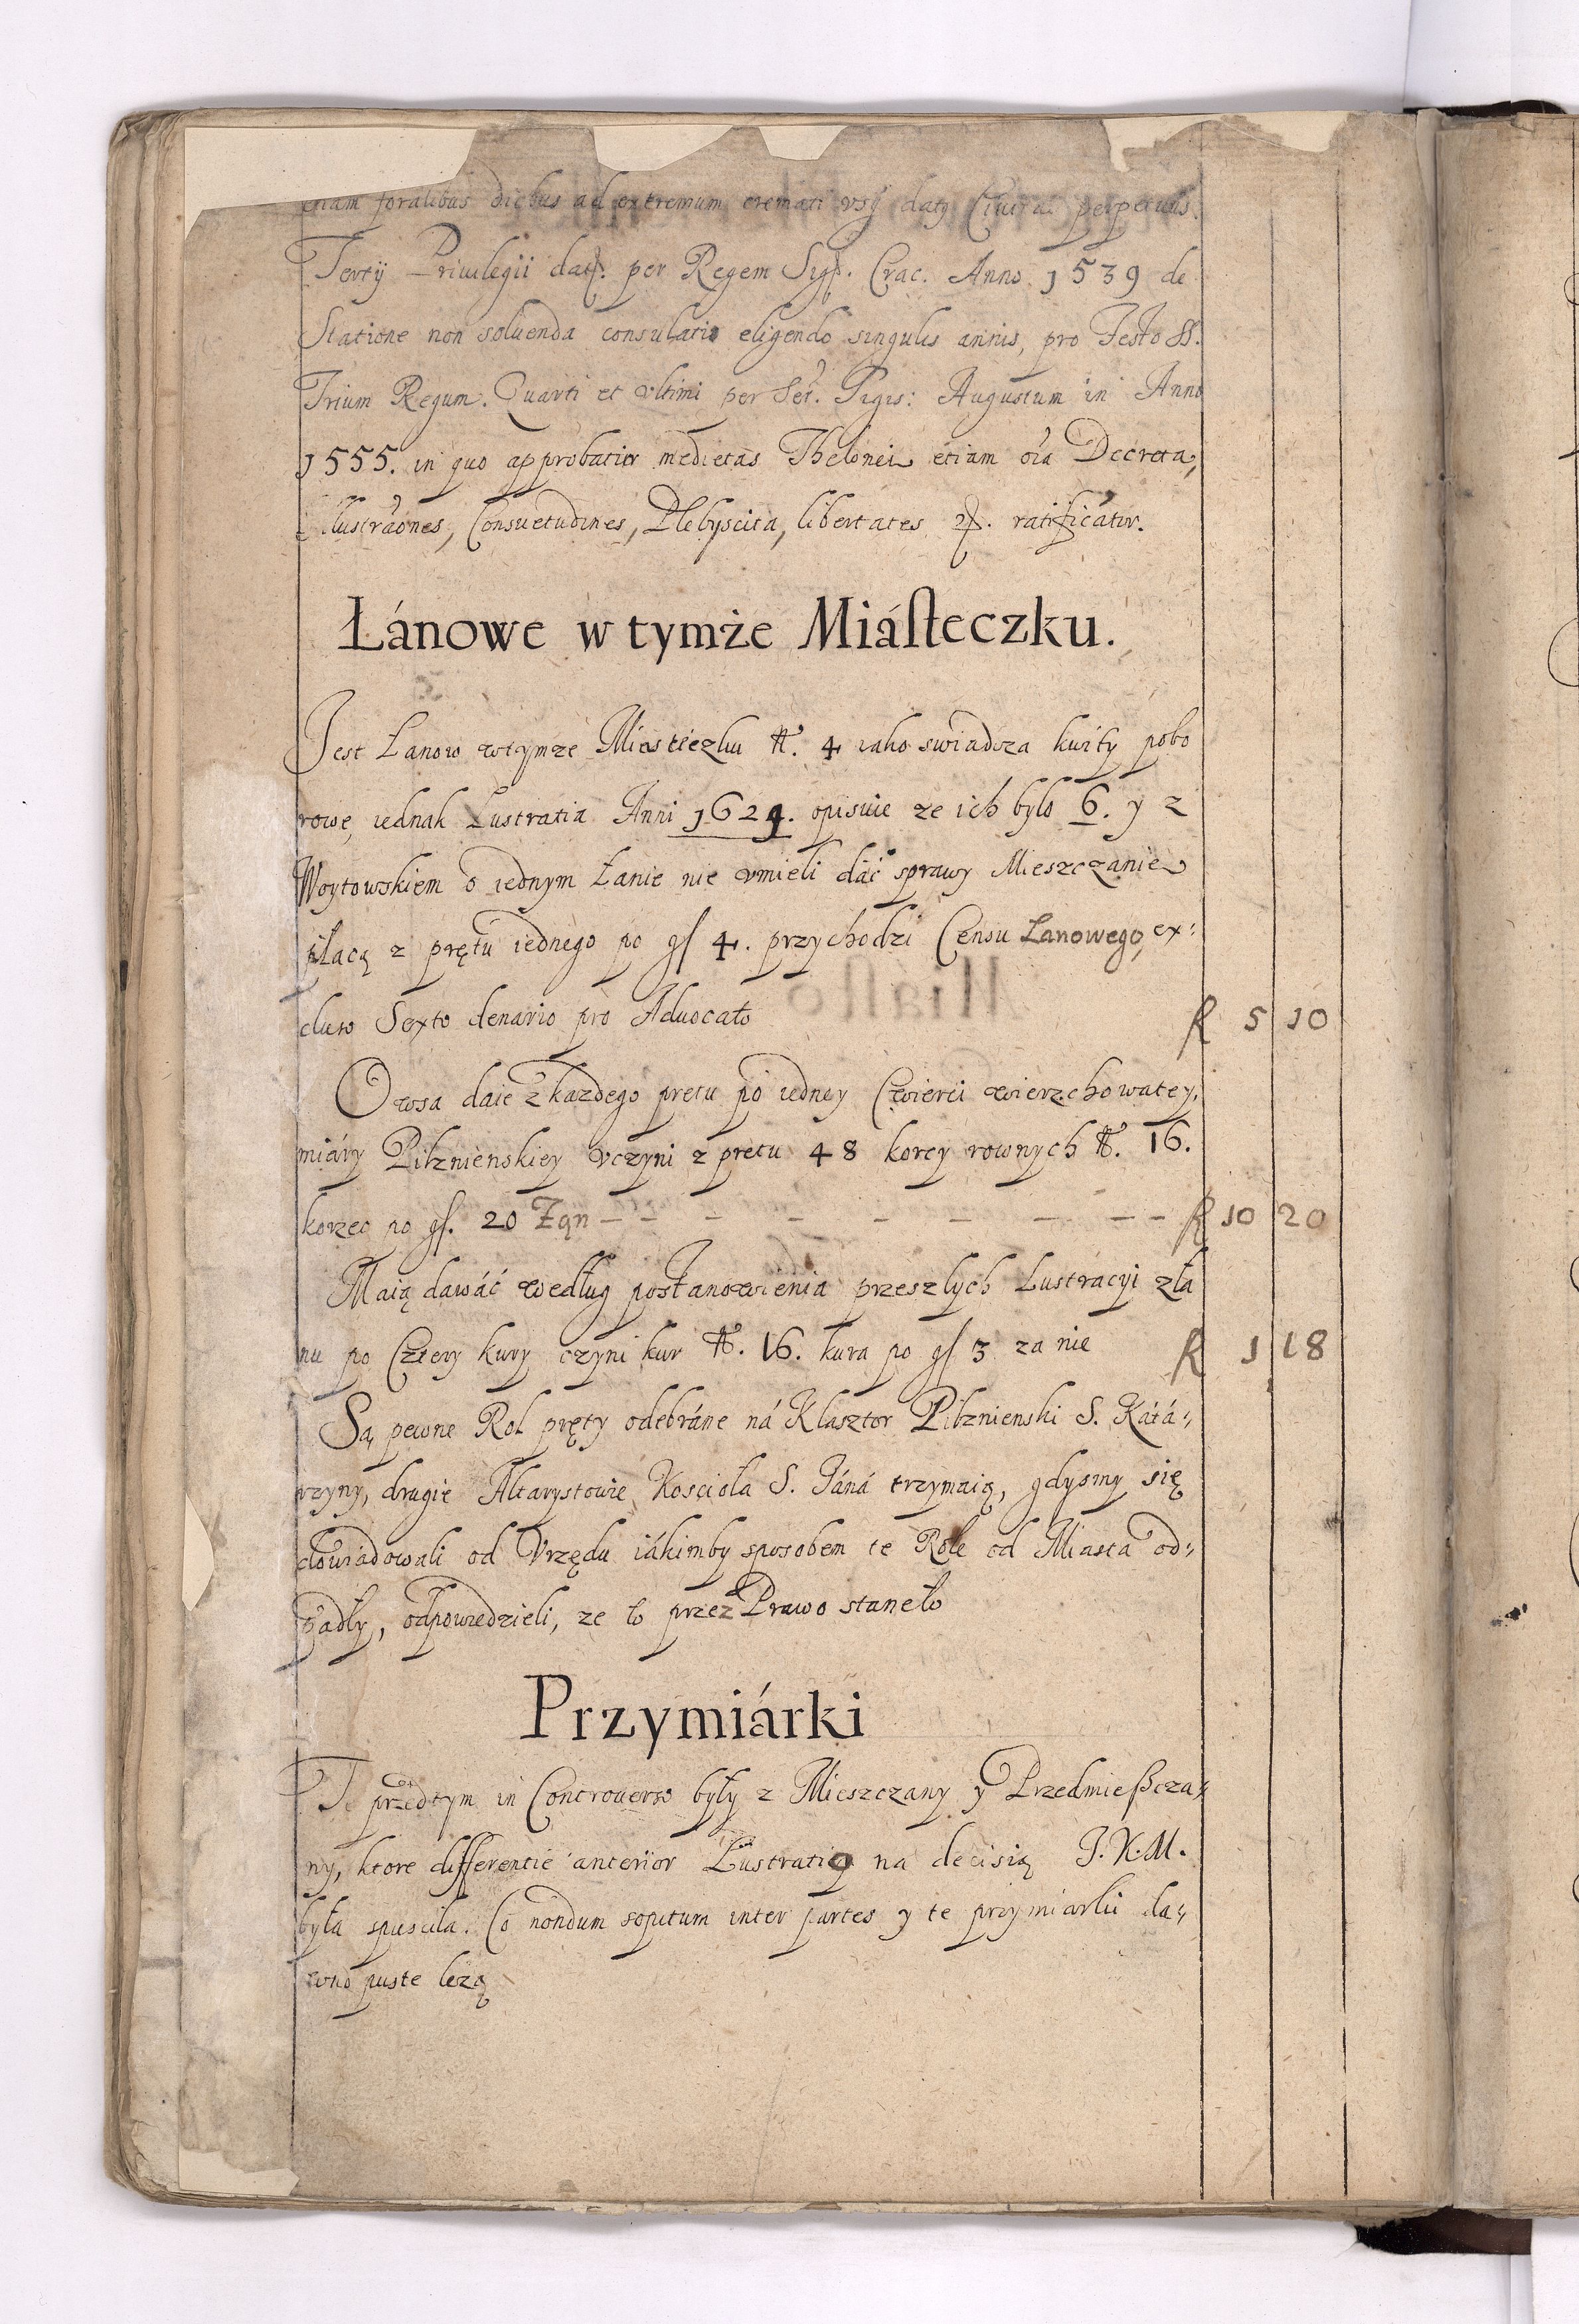 etiam foralibus diebus ad extremum cremati vsq daty Ciuita. perpetuis.
Tertij Priuilegii dat. per Regem Sig. Crac. Anno 1539 de
Statione non soluenda consulatu eligendo singulis annis, pro Festo SS.
Trium Regum. Quarti et vltimi per Ser. Sigis: Augustum in Anno
1555. in quo approbatur medietas Thelonei etiam oia Decreta,
Illustraones, Consuetudines, Plebyscita, libertates &. ratificatur.
Łánowe w tymże Miásteczku.
Jest Łanow wtymze Miasteczku N. 4 iako swiadcza kwity pobo
rowe, iednak Lustratia Anni 1624. opisuie ze ich było 6. y z
Woytowskiem o iednym Łanie nie vmieli dać sprawy Mieszczanie
płacą z prętu iednego po gſ 4. przychodzi Censu Łanowego, ex:
cluso Sexto denario pro Aduocato R 5 10
Owsa daie z kazdego pretu po iedney Czwierci wierzchowatey,
miáry Pilznienskiey vczyni z pretu 48 korcy rownych N. 16.
korzec po gſ. 20 Zań – – – – – – – – – R 10 20
Maią dawáć według postanowienia przeszlych Lustracyi zła
nu po Cztery kury czyni kur N. 16. kura po gſ 3 za nie R 1 18
Są pewne Rol pręty odebráne ná Klasztor Pilznienski S. Kátá„
rzyny, drugie Altarystowie Koscioła S. Jáná trzymaią, gdysmy się
dowiadowali od Vrzędu iákimby sposobem te Role od Miasta od„
padły, odpowiedzieli, ze to przez Prawo staneło
Przymiárki
Te przedtym in Controuerso były z Mieszczany y Przedmieszcza„
ny, ktore differentie anterior Lustratio na decisią J.K.M.
była spuscila. Co nondum sopitum inter partes y te przymiarki da„
wno puste lezą